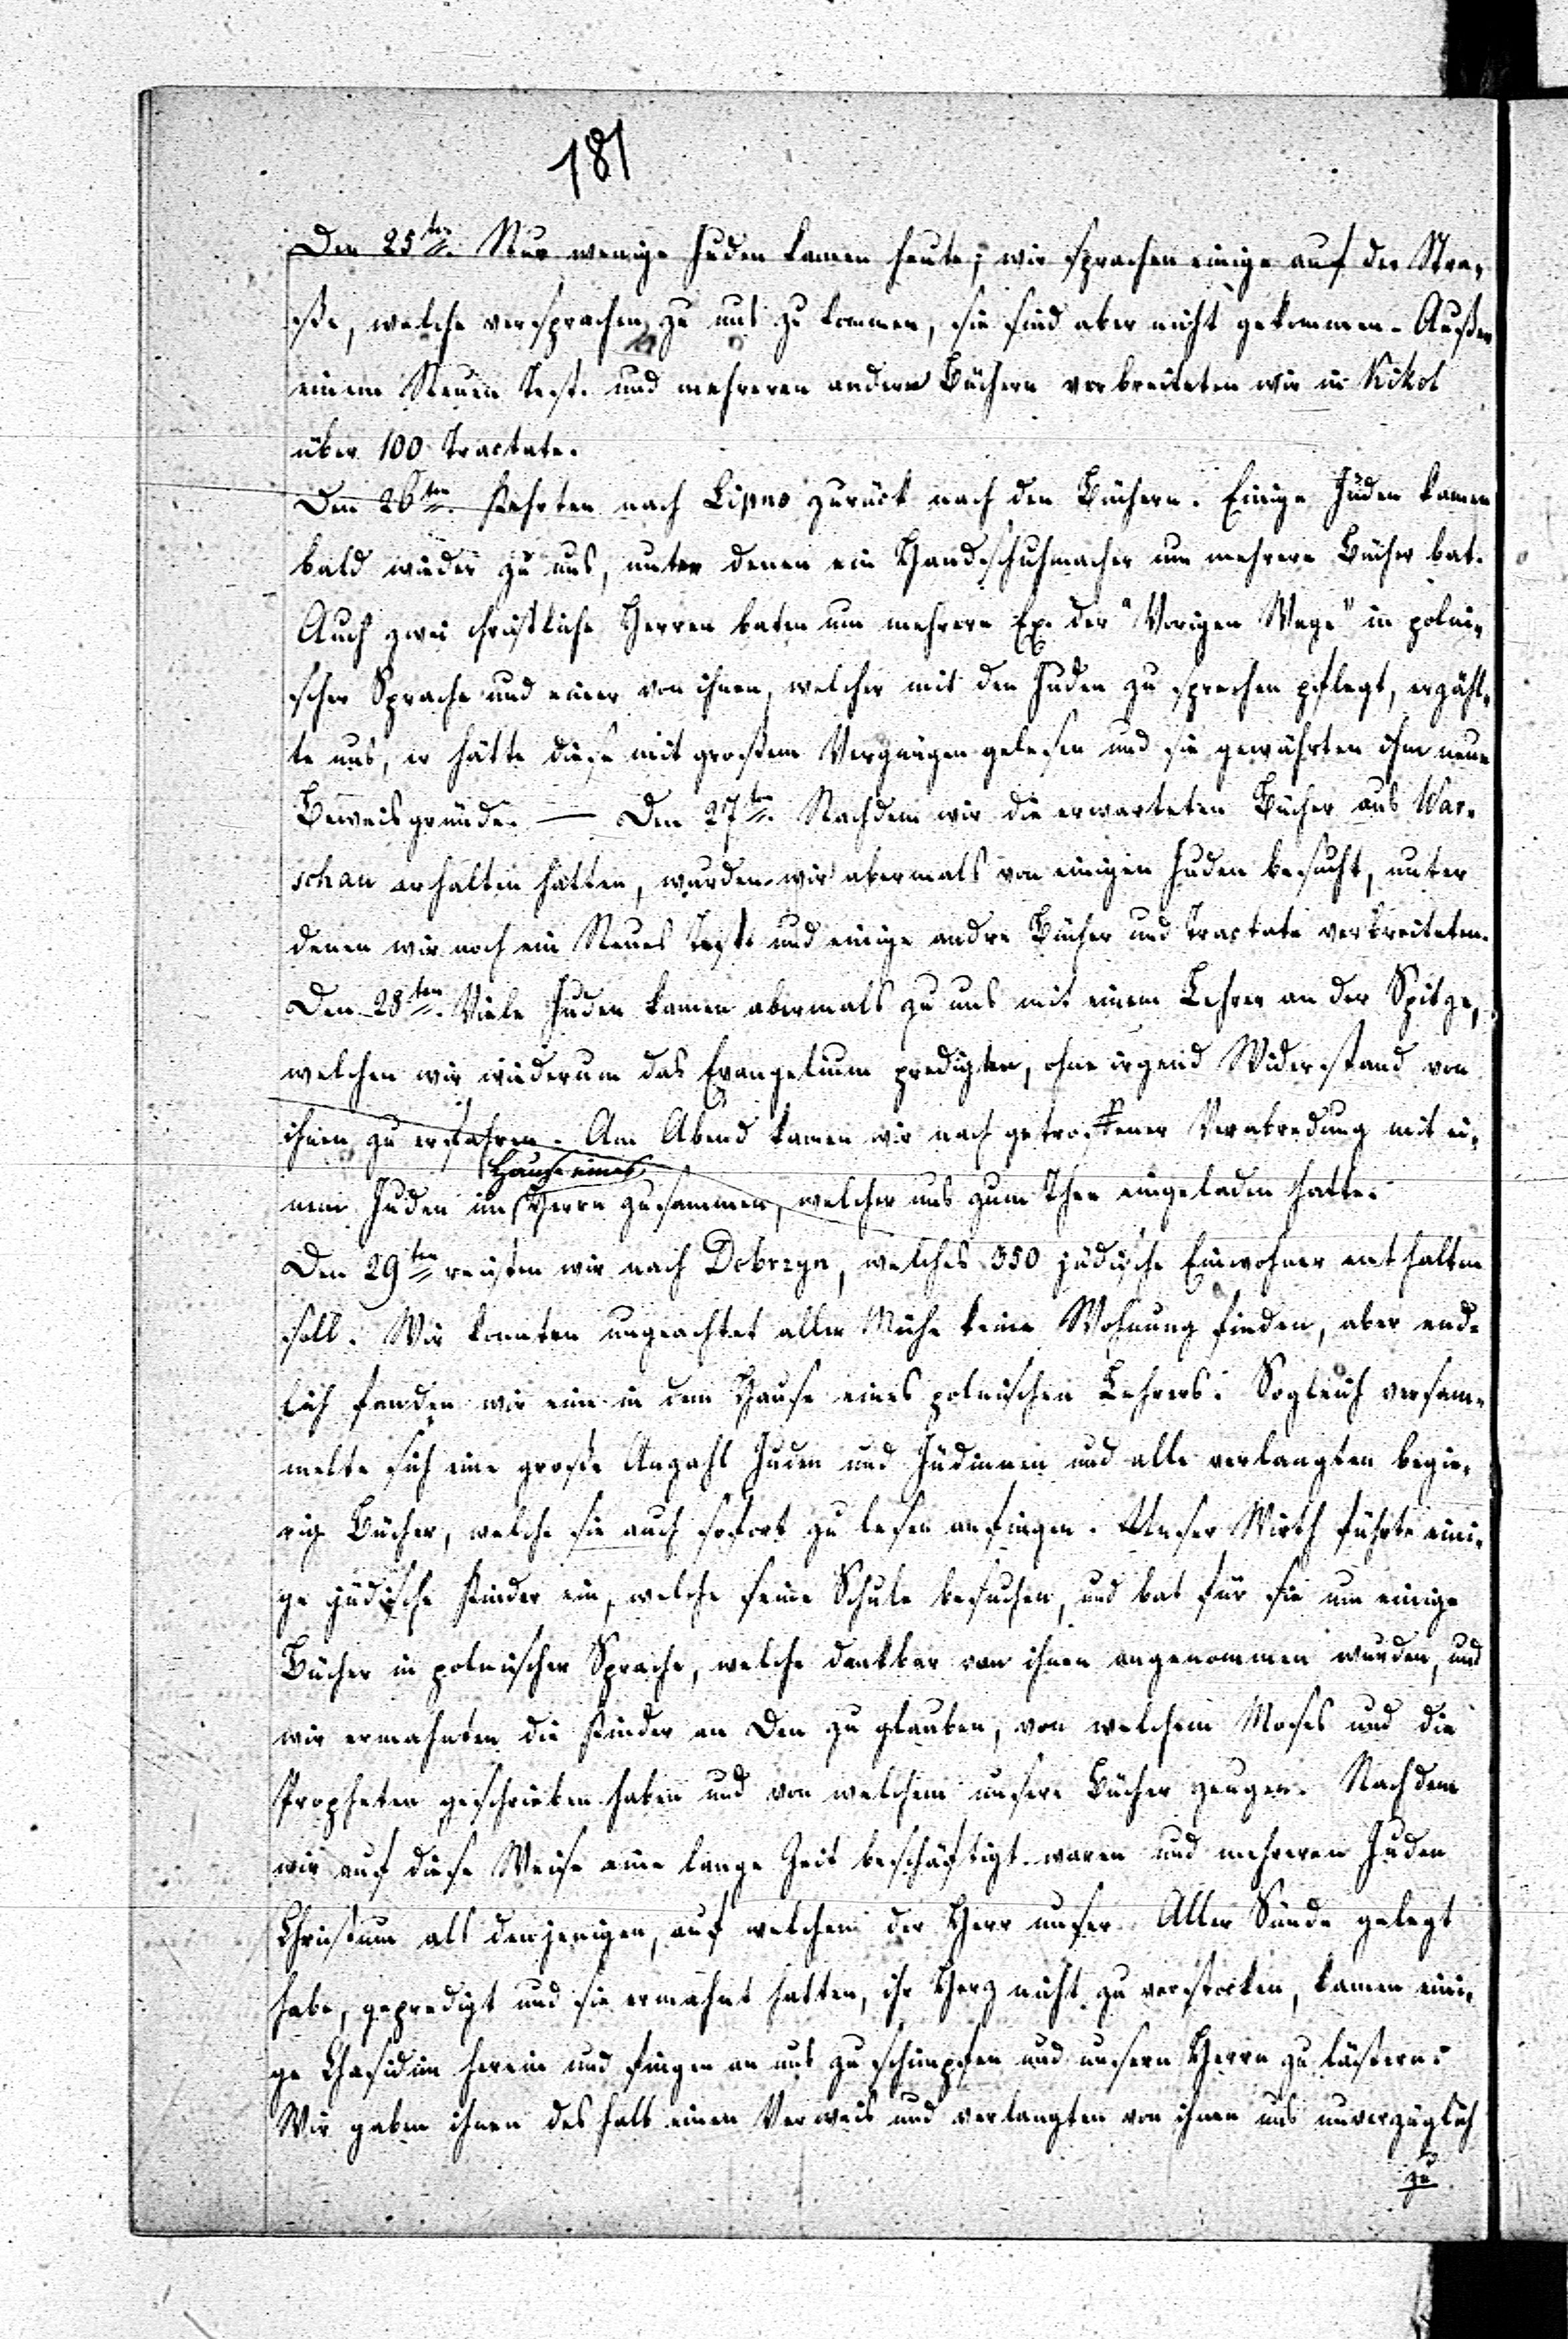 181
Den 25ten. Nur wenige Juden kamen heute; wir sprachen einige auf der Stra-
ße, welche versprachen zu uns zu kommen, sie sind aber nicht gekommen. Außer
einem Neuen Test. und mehreren andern Büchern verbreiteten wir in Kikol
über 100 Tractate.
Den 26ten. Kehrten nach Lipno zurück nach den Büchern. Einige Juden kamen
bald wieder zu uns, unter denen ein Handschuhmacher um mehrere Bücher bat.
Auch zwei christliche Herren baten um mehrere Ex. der "Vorigen Wege" in polni-
scher Sprache und einer von ihnen, welcher mit den Juden zu sprechen pflegt, erzähl-
te uns, er hätte diese mit großem Vergnügen gelesen und sie gewährten ihm neue
Beweisgründe. — Den 27ten. Nachdem wir die erwarteten Bücher aus War-
schau erhalten hatten, wurden wir abermals von einigen Juden besucht, unter
denen wir noch ein Neues Test. und einige andre Bücher und Tractate verbreiteten.
Den 28ten. Viele Juden kamen abermals zu uns mit einem Lehrer an der Spitze,
welchen wir wiederum das Evangelium predigten, ohne irgend Widerstand von
ihnen zu erfahren. Am Abend kamen wir nach getroffener Verabredung mit ei-
Hause eines
nem Juden im Herrn zusammen, welcher uns zum Thee eingeladen hatte.
Den 29ten reisten wir nach Dobrzyn, welches 350 jüdische Einwohner enthalten
soll. Wir konnten ungeachtet aller Mühe keine Wohnung finden, aber end-
lich fanden wir eine in dem Hause eines polnischen Lehrers. Sogleich versam-
melte sich eine große Anzahl Juden und Jüdinnen und alle verlangten begie-
rig Bücher, welche sie auch sofort zu lesen anfingen. Unser Wirth führte eini-
ge jüdische Kinder ein, welche seine Schule besuchen, und bat für sie um einige
Bücher in polnischer Sprache, welche dankbar von ihnen angenommen wurden, und
wir ermahnten die Kinder an Den zu glauben, von welchem Moses und die
Propheten geschrieben haben und von welchem unsere Bücher zeugen. Nachdem
wir auf diese Weise eine lange Zeit beschäftigt waren und mehreren Juden
Christum als denjenigen, auf welchem der Herr unser Aller Sünde gelegt
habe, gepredigt und sie ermahnt hatten, ihr Herz nicht zu verstocken, kamen eini-
ge Chasidim herein und fingen an uns zu schimpfen und unsern Herrn zu lästern.
Wir gaben ihnen deshalb einen Verweis und verlangten von ihnen uns unverzüglich
zu